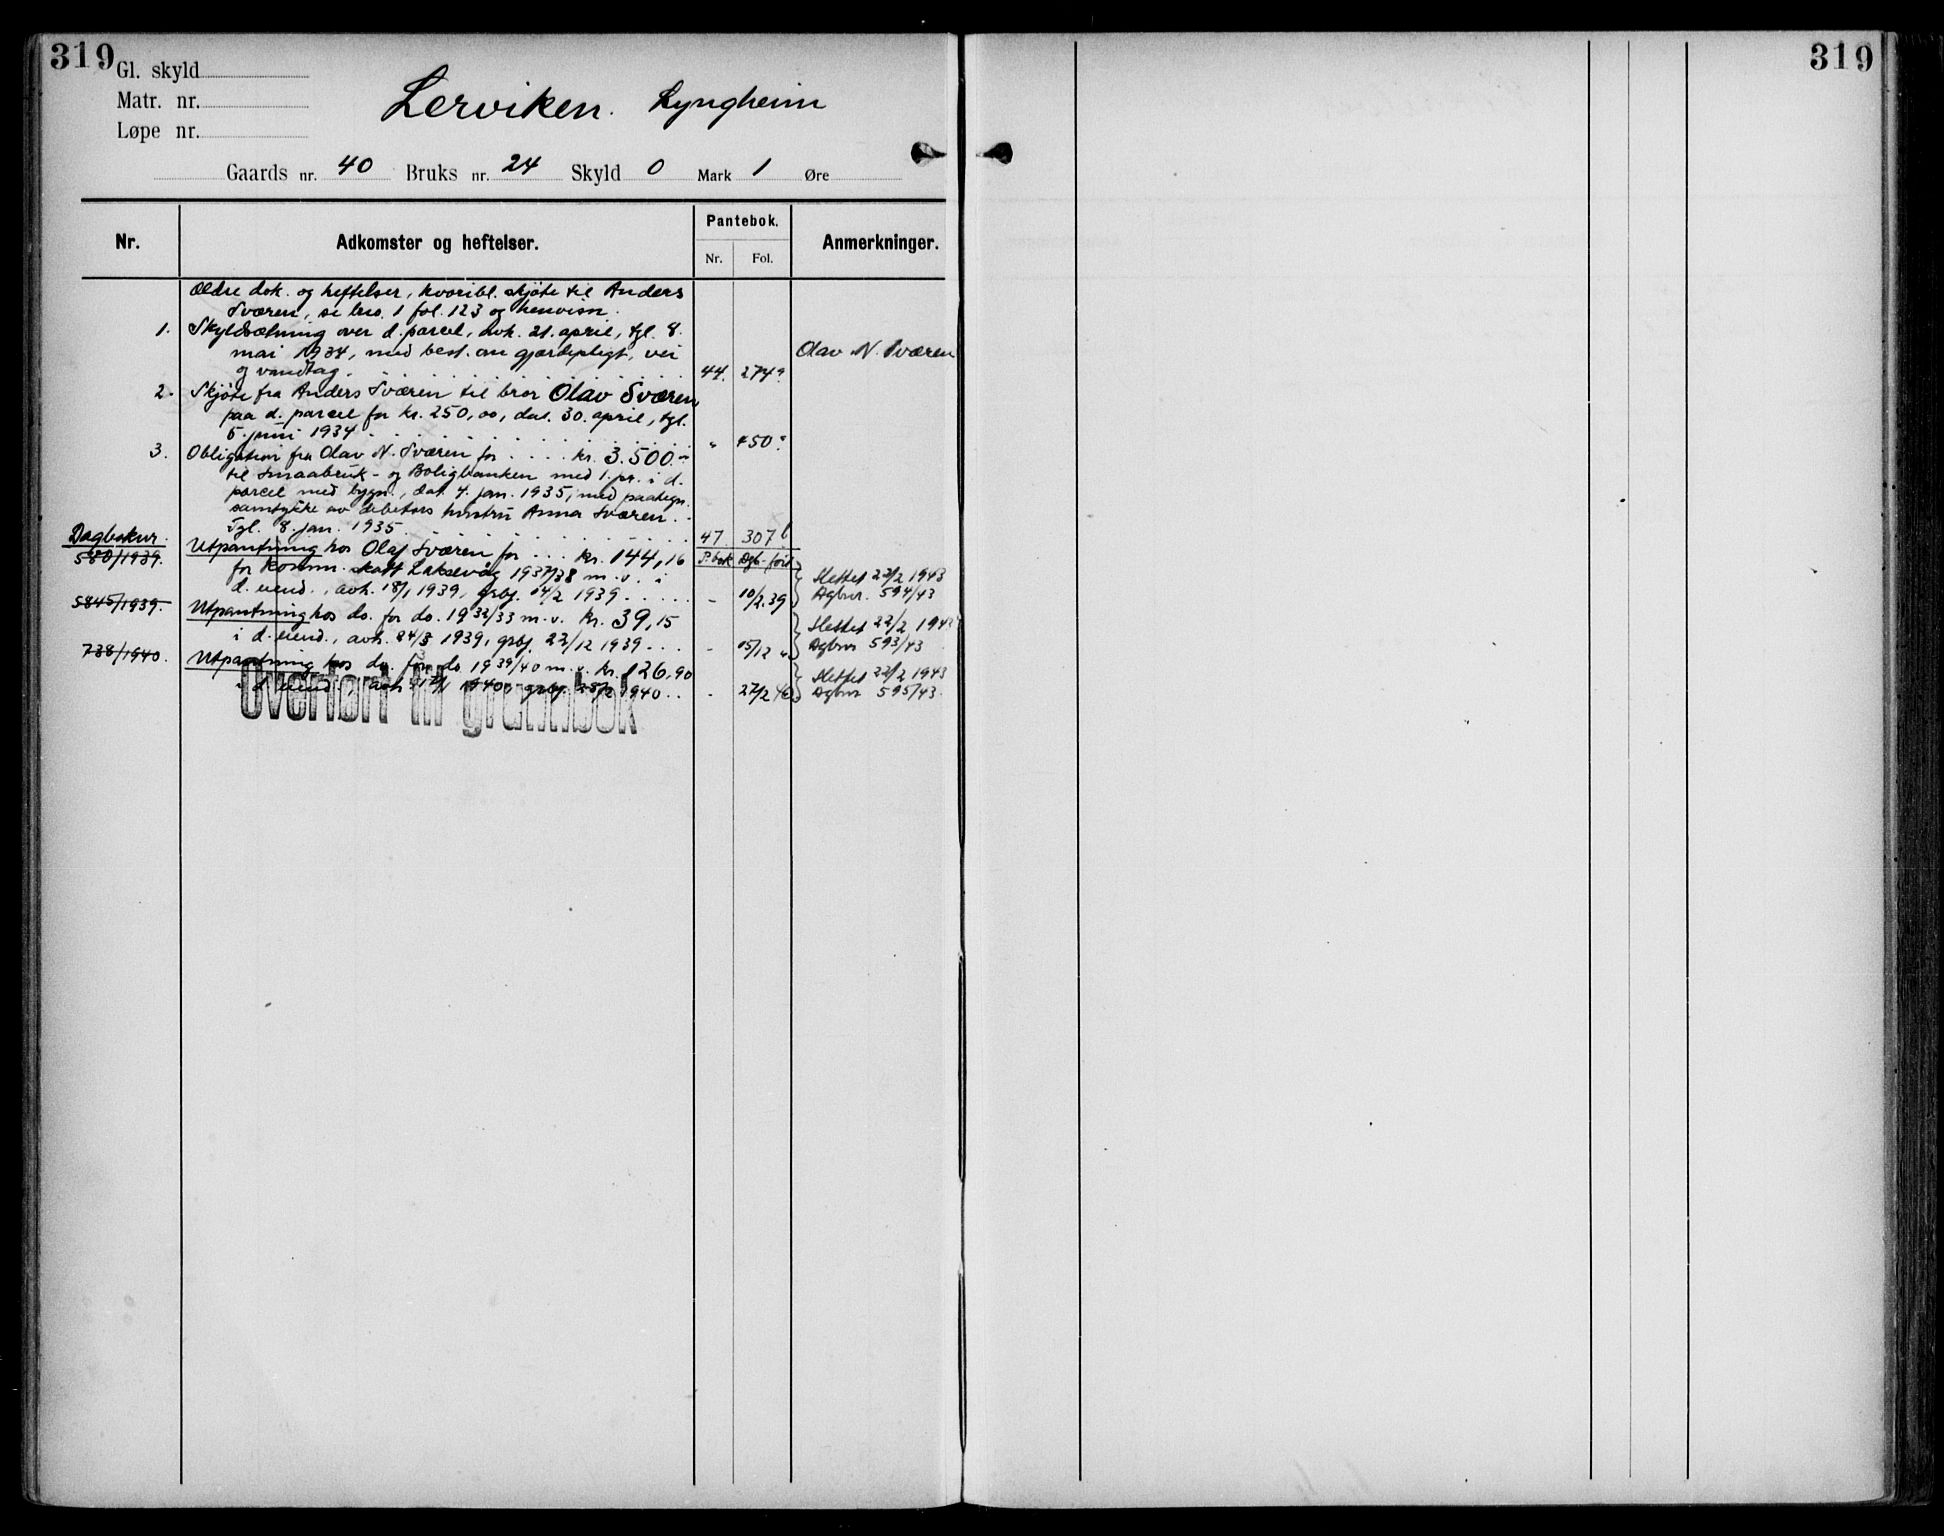 319
319
Gl. skyld
Matr. nr.
Løpe nr.
Lerviken. Lyngheim
Gaards nr. 40 Bruks nr. 24 Skyld 0 Mark 1 Øre
Nr.
Adkomster og heftelser.
Pantebok.
Nr. Fol.
Anmerkninger.
Ældre dok. og heftelser, hvoribl. skjøte til Anders
Sværen, se bno. 1 fol. 123 og henvisn.
1. Skyldsætning over d. parcel, avh. 21. april, tgl. 8.
mai 1934, med best. om gjærdepligt, vei
og vandtag. 44. 274a
Olav N. Sværen
2. Skjøte fra Anders Sværen til bror Olav Sværen
paa d. parcel for kr. 250,00, dat. 30. april, tgl.
5. juni 1934 " 450a
3. Obligation fra Olav N. Sværen for .... kr. 3.500.-
til Smaabruk- og Boligbanken med 1. pr. i d.
parcel med bygn., dat. 4. jan. 1935, med paategn.
samtykke av debitors hustru Anna Sværen.
Tgl. 8. jan. 1935 47. 307b
Dagboknr.
580/1939. Utpantning hos Olaf Sværen for ... kr. 144,16 P.bok Dgb.-ført
for komm. skatt Laksevåg 1937/38 m.v. i
d. eiend., avh. 18/1 1939, grbj. 14/2 1939 ..... - 10/2.39
Slettet 22/2 1943
Dgbnr. 594/43
5845/1939. Utpantning hos do. for do. 1932/33 m.v. kr. 39,15
i d. eiend., avh. 24/8 1939, grbj. 22/12 1939 ... - 15/12 "
Slettet 22/2 1943
Dgbnr 593/43
738/1940. Utpantning hos do. for do 1939/40 m.v. kr. 126,90
i d. eiend. avh. 1940, grbj. 1940.. - 27/2 40
Slettet 22/2 1943
Dgbnr 595/43.
Overført til grunnbok